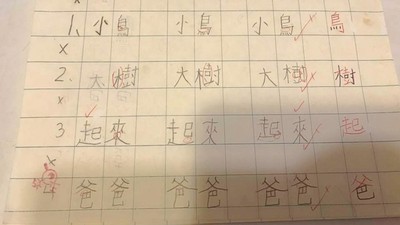 1、小鳥 小鳥 小鳥 鳥
2、大樹 大樹 大樹 樹
3 起來 起來 起來 起
爸爸 爸爸 爸爸 爸